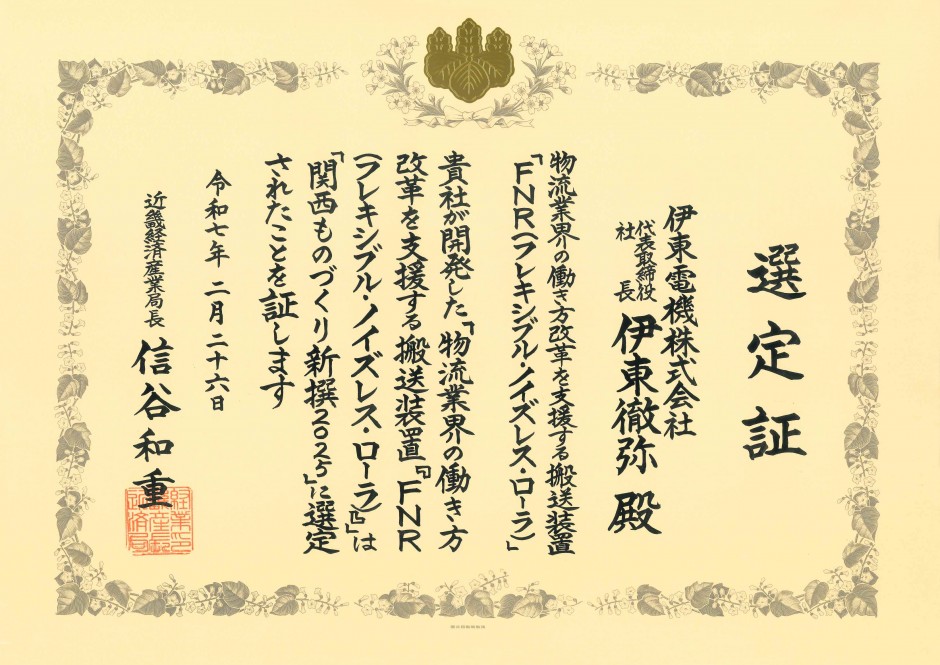 選定証
伊東電機株式会社
代表取締役
社長
伊東徹弥 殿
物流業界の働き方改革を支援する搬送装置
「FNR(フレキシブル・ノイズレス・ローラ)」
貴社が開発した「物流業界の働き方
改革を支援する搬送装置『FNR
(フレキシブル・ノイズレス・ローラ)』」は
「関西ものづくり新撰2025」に選定
されたことを証します
令和七年 二月二十六日
近畿経済産業局長
信谷和重